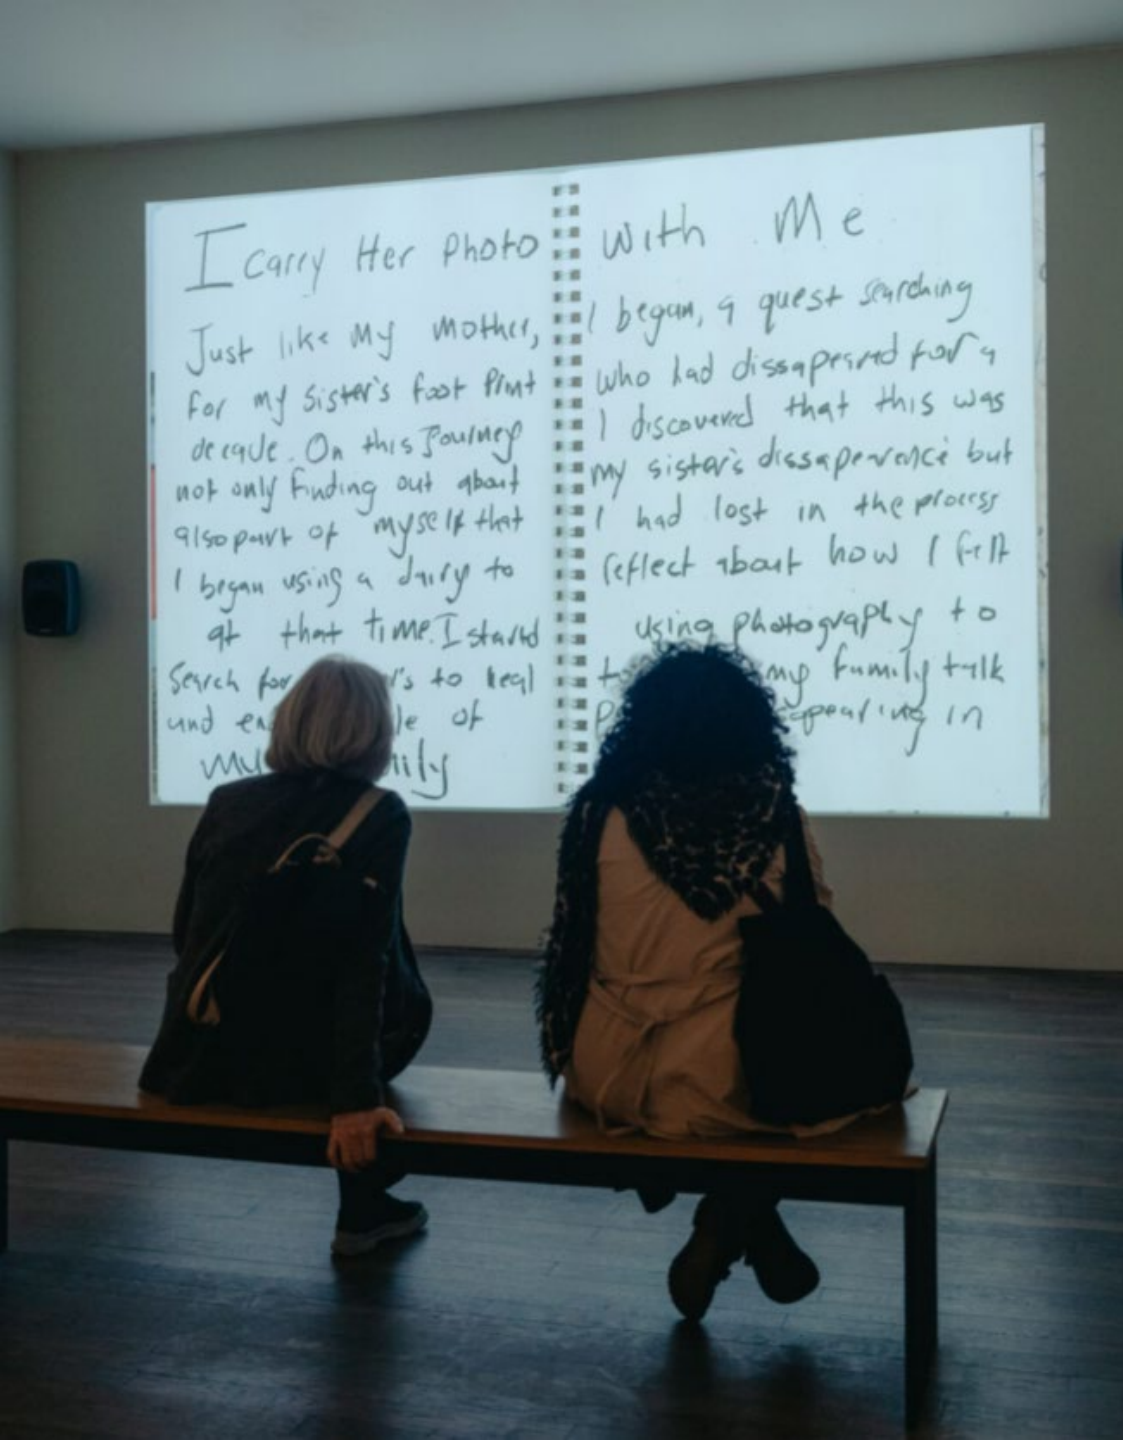 I carry Her Photo with Me
Just like My mother, I began, a quest searching
for my sister's foot Print who had dissapeared for a
decade. On this Journey I discovered that this was
not only finding out about my sister's dissaperence but
also part of myself that I had lost in the process
I began using a dairy to reflect about how I felt
at that time. I started using photography to
Search for to heal my family talk
und of in
my